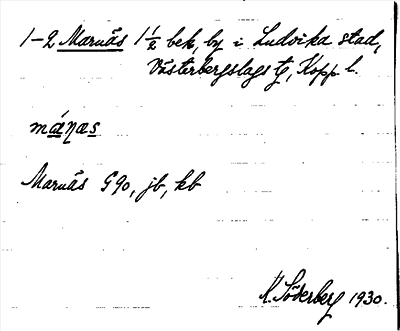 1-2 Marnäs 1 1/2 bek, by i Ludvika stad,
Västerbergslags tg, Kopp l.
mánas
Marnäs G90, jb, kb
N. Söderberg 1930.